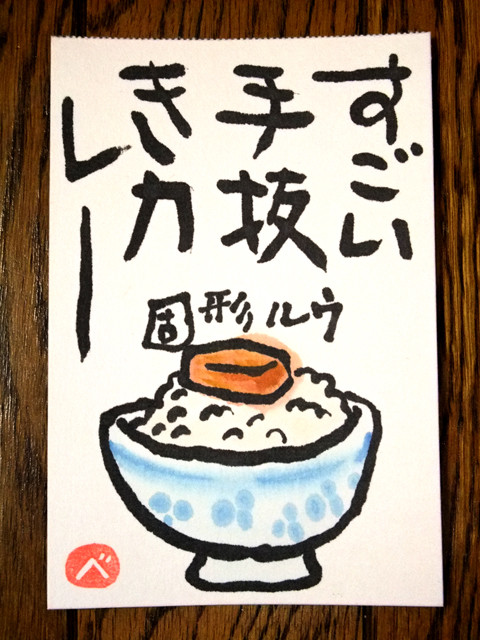 すごい
手抜
きカ
レー
固形ルウ
べ